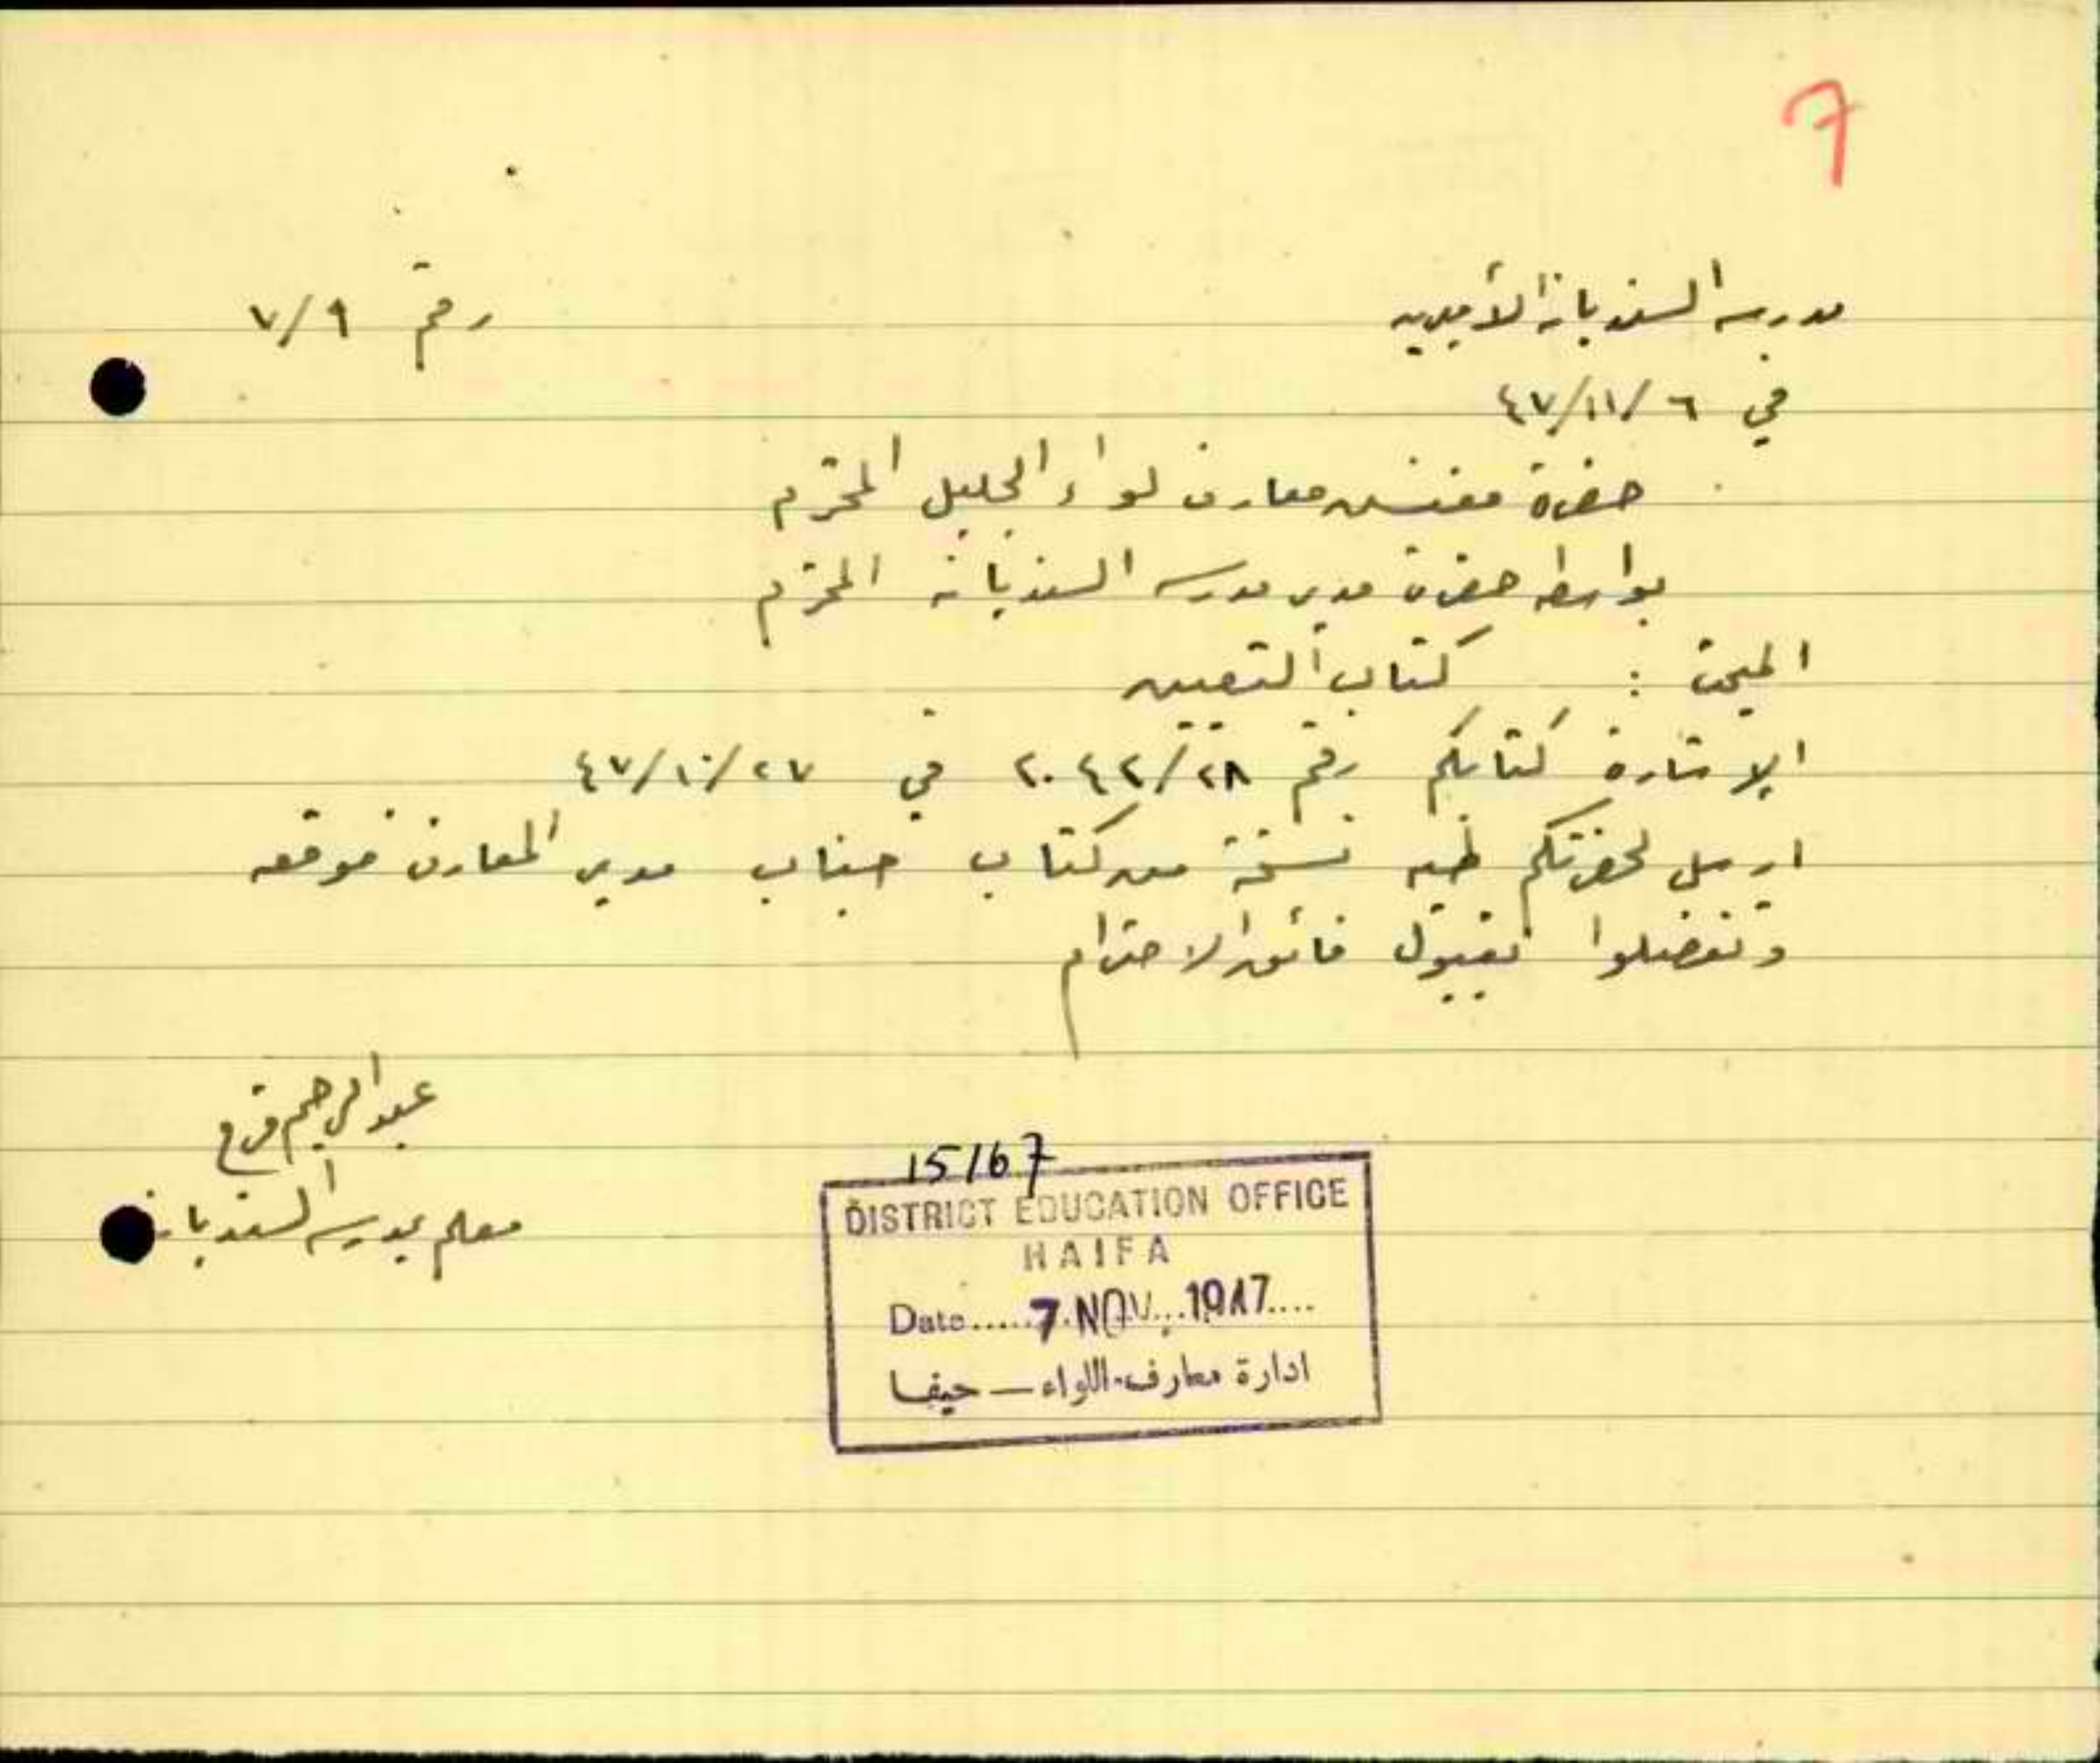 7
مدرسة السنديانة الأميرية
رقم ٧/٩
في ٤٧/١١/٦
حضرة مفتش معارف لواء الجليل المحترم
بواسطة حضرة مدير مدرسة السنديانة المحترم
المبحث : كتاب التعيين
الإشارة كتابكم رقم ٢٠٤٢/٢٨ في ٤٧/١٠/٢٧
ارسل لحضرتكم طيه نسخة من كتاب جناب مدير المعارف موقعه
وتفضلوا بقبول فائق الاحترام
عبد الرحيم
معلم بمدرسة السنديانة
15167
DISTRICT EDUCATION OFFICE
HAIFA
Date.....7.NOV...1947....
ادارة معارف اللواء — حيفا